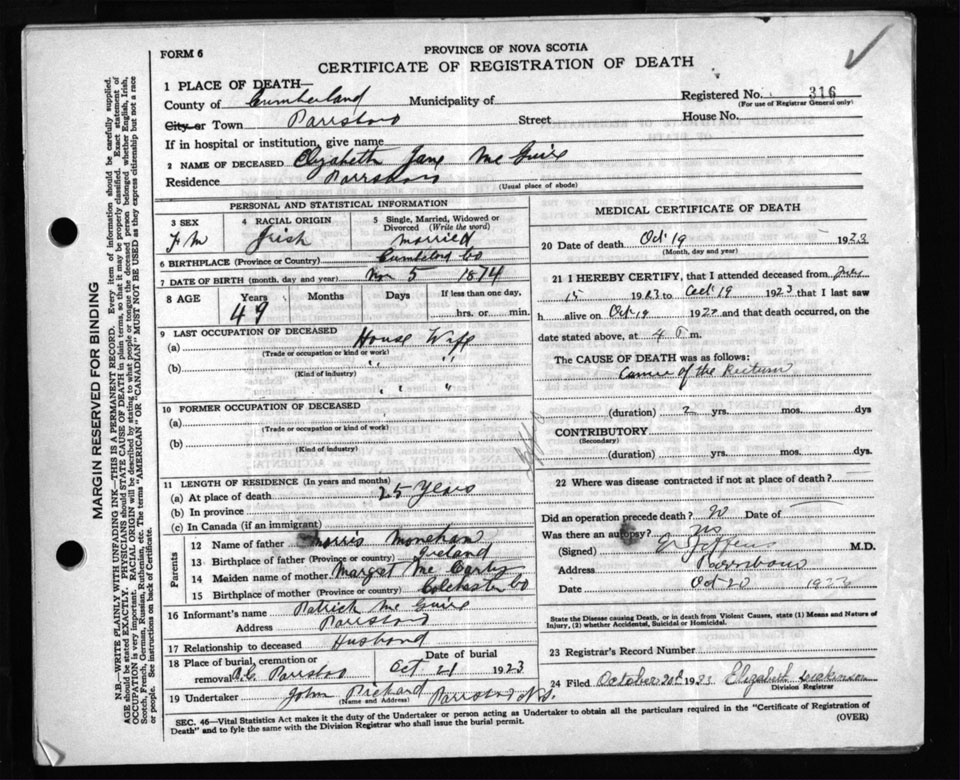 FORM 6
PROVINCE OF NOVA SCOTIA
CERTIFICATE OF REGISTRATION OF DEATH
1 PLACE OF DEATH—
Registered No. 316
(For use of Registrar General only)
County of Cumberland Municipality of
City or Town Parrsboro Street House No.
If in hospital or institution, give name
2 NAME OF DECEASED Elizabeth Jane Mc Guire
Residence Parrsboro
(Usual place of abode)
PERSONAL AND STATISTICAL INFORMATION
3 SEX
F M
4 RACIAL ORIGIN
Irish
5 Single, Married, Widowed or Divorced (Write the word)
Married
6 BIRTHPLACE (Province or Country) Cumberland Co
7 DATE OF BIRTH (month, day and year) Nov 5 1874
8 AGE Years Months Days If less than one day,
49 hrs. or min.
9 LAST OCCUPATION OF DECEASED
(a) House Wife
(Trade or occupation or kind or work)
(b) " "
(Kind of industry)
" "
10 FORMER OCCUPATION OF DECEASED
(a)
(Trade or occupation or kind of work)
(b)
(Kind of industry)
11 LENGTH OF RESIDENCE (In years and months)
(a) At place of death 25 Years
(b) In province
(c) In Canada (if an immigrant)
Parents
12 Name of father Morris Monehan
13 Birthplace of father (Province or country) Ireland
14 Maiden name of mother Margret Mc Carty
15 Birthplace of mother (Province or country) Colchester Co
16 Informant's name Patrick Mc Guire
Address Parrsboro
17 Relationship to deceased Husband
18 Place of burial, cremation or removal R.C. Parrsboro
Date of burial
Oct 21 1923
19 Undertaker John Pickard Parrsboro N.S.
(Name and Address)
MEDICAL CERTIFICATE OF DEATH
20 Date of death Oct 19 1923
(Month, day and year)
21 I HEREBY CERTIFY, that I attended deceased from July
15 1923 to Oct 19 1923 that I last saw
h alive on Oct 19 192 and that death occurred, on the
date stated above, at 4 P m.
The CAUSE OF DEATH was as follows:
Cancer of the Rectum
(duration) 2 yrs. mos. dys
CONTRIBUTORY
(Secondary)
(duration) yrs. mos. dys.
22 Where was disease contracted if not at place of death?
Did an operation precede death? No Date of
Was there an autopsy? No
(Signed) M.D.
Address Parrsboro
Date Oct 20 1923
State the Disease causing Death, or in death from Violent Causes, state (1) Means and Nature of Injury, (2) whether Accidental, Suicidal or Homicidal.
23 Registrar's Record Number
24 Filed October 1923 Elizabeth
Division Registrar
SEC. 46—Vital Statistics Act makes it the duty of the Undertaker or person acting as Undertaker to obtain all the particulars required in the "Certificate of Registration of
Death" and to fyle the same with the Division Registrar who shall issue the burial permit.
(OVER)
MARGIN RESERVED FOR BINDING
N.B.—WRITE PLAINLY WITH UNFADING INK—THIS IS A PERMANENT RECORD. Every item of information should be carefully supplied.
AGE should be stated EXACTLY. PHYSICIANS should STATE CAUSE OF DEATH in plain terms, so that it may be properly classified. Exact statement of
OCCUPATION is very important. RACIAL ORIGIN will be described by stating to what people or tongue the deceased person belonged whether English, Irish,
Scotch, French, German, Russian, Ruthenian, etc. The terms "AMERICAN" OR "CANADIAN" MUST NOT BE USED as they express citizenship but not a race
or people. See instructions on back of Certificate.